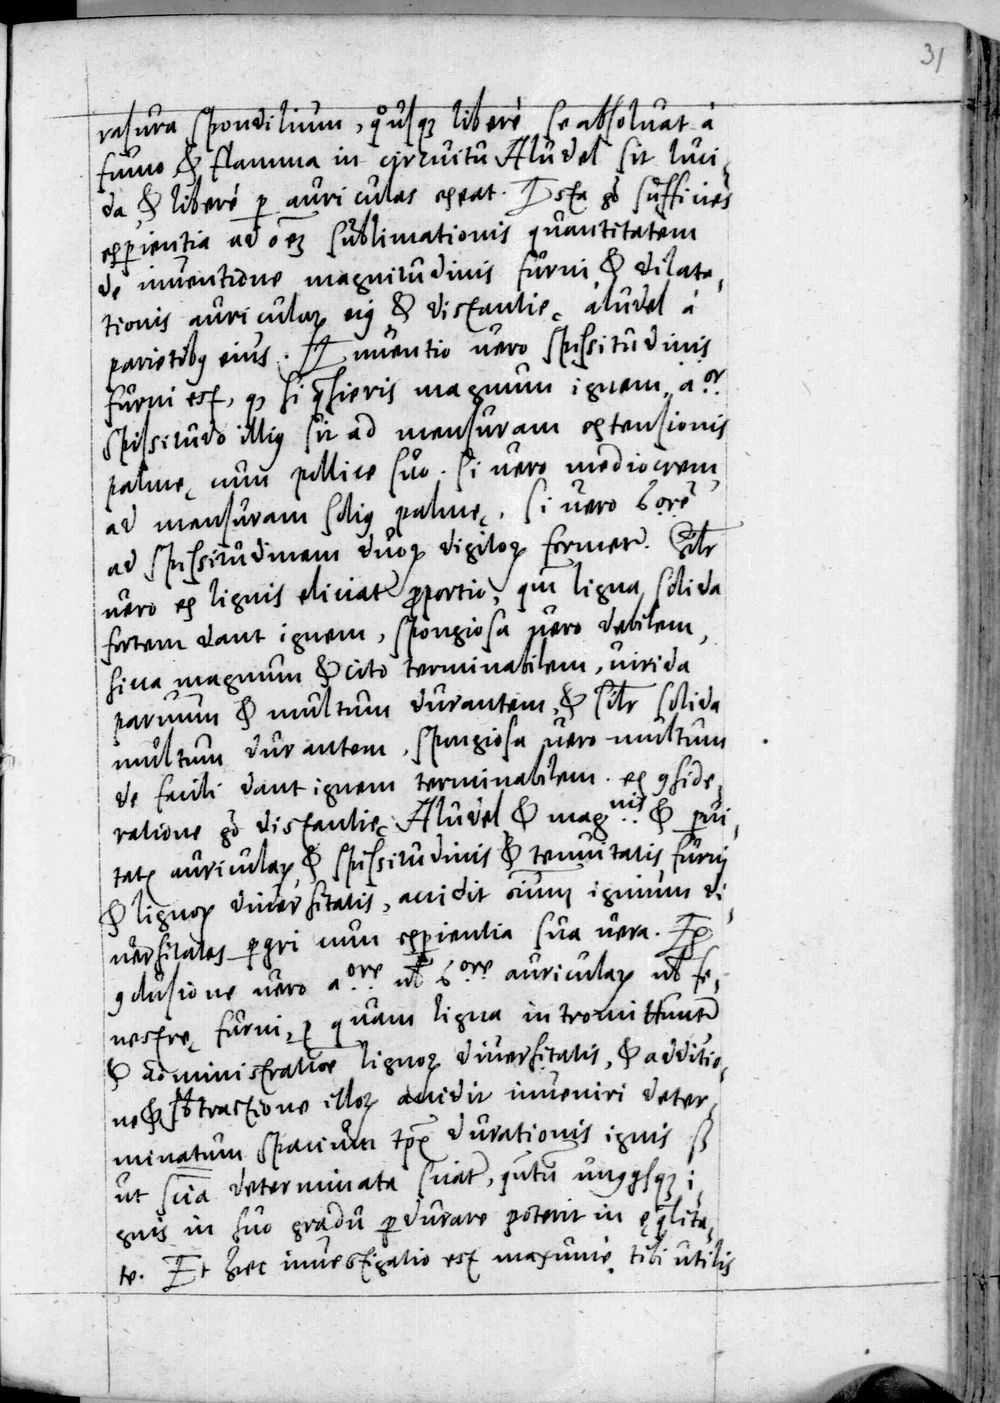 31
rasura spondilium, qͦusqꝫ liberè se absoluat à
fumo & flamma in circuitu Aludel sit luci,
da & liberè ꝑ auriculas exeat. Ista gͦ sufficiẽs
exꝑientia ad oẽꝫ sublimationis quantitatem
de inuentione magnitudinis furni & dilata,
tionis auriculaꝝ eiꝰ & distantię aludel à
parietibꝰ eius. Inuentio uero spissitudinis
furni est, qꝫ si q̃sieris magnum ignem, a.or.
spissitudo illiꝰ sit ad mensuram extensionis
palmę cum pollice suo. Si uero mediocrem,
ad mensuram soliꝰ palmę. Si uero b.orẽ
ad spissitudinem duoꝝ digitoꝝ formet̃. Sil̃r
uero ex lignis eliciat̃ ꝓportio, qm̃ ligna solida
fortem dant ignem, spongiosa uero debilem,
sicca magnum & cito terminabilem, uirida
paruum & multum durantem, & sil̃r solida
multum durantem, spongiosa uero multum
de facili dant ignem terminabilem. ex ꝯside,
ratione gͦ distantię Aludel & magnis & ꝑui,
tatꝫ auriculaꝝ & spissitudinis & tenuitatis furnij
& lignoꝝ diuersitatis, accidit oĩum ignium di,
uersitates ꝑqri cum exꝑientia sua uera. Ex
ꝯclusione uero a.ore ul̃ b.ore auriculaꝝ ul̃ fe,
nestrę furni, ꝑ quam ligna intromittunt̃
& administratiõe lignoꝝ diuersitatis, & additio,
ne & sb̃tractione illoꝝ accidit inueniri deter,
minatum spacium tꝑꝫ durationis ignis
ut scĩa determinata sciat̃, qũtũ unꝰqͥsqꝫ i,
gnis in suo gradu ꝑdurare poterit in ęq̃lita,
te. Et hęc inuestigatio est maxumè tibi utilis